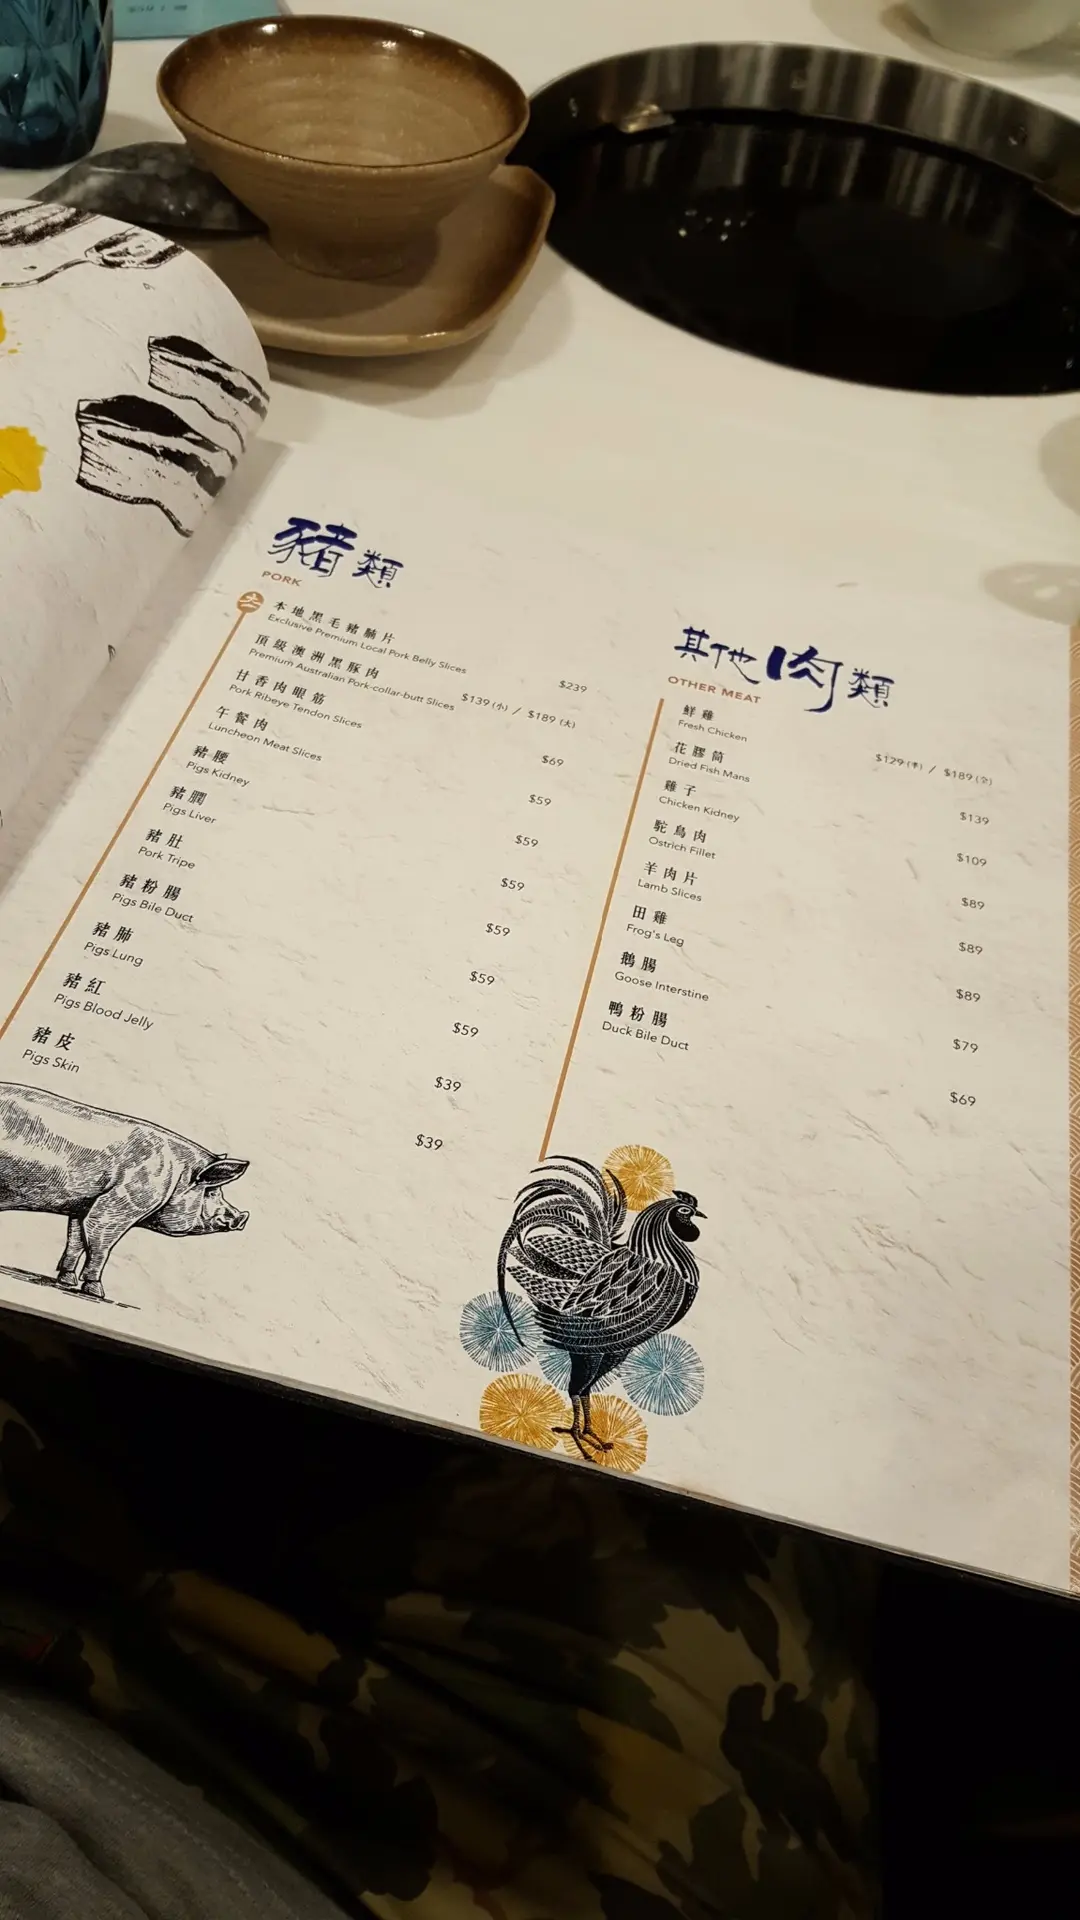 豬類
PORK
本地黑毛豬腩片
Exclusive Premium Local Pork Belly Slices
$239
頂級澳洲黑豚肉
Premium Australian Pork-collar-butt Slices
$139 (小) / $189 (大)
甘香肉眼筋
Pork Ribeye Tendon Slices
$69
午餐肉
Luncheon Meat Slices
$59
豬腰
Pigs Kidney
$59
豬膶
Pigs Liver
$59
豬肚
Pork Tripe
$59
豬粉腸
Pigs Bile Duct
$59
豬肺
Pigs Lung
$59
豬紅
Pigs Blood Jelly
$39
豬皮
Pigs Skin
$39
其他肉類
OTHER MEAT
鮮雞
Fresh Chicken
$129 (半) / $189 (全)
花膠筒
Dried Fish Mans
$139
雞子
Chicken Kidney
$109
鴕鳥肉
Ostrich Fillet
$89
羊肉片
Lamb Slices
$89
田雞
Frog's Leg
$89
鵝腸
Goose Interstine
$79
鴨粉腸
Duck Bile Duct
$69